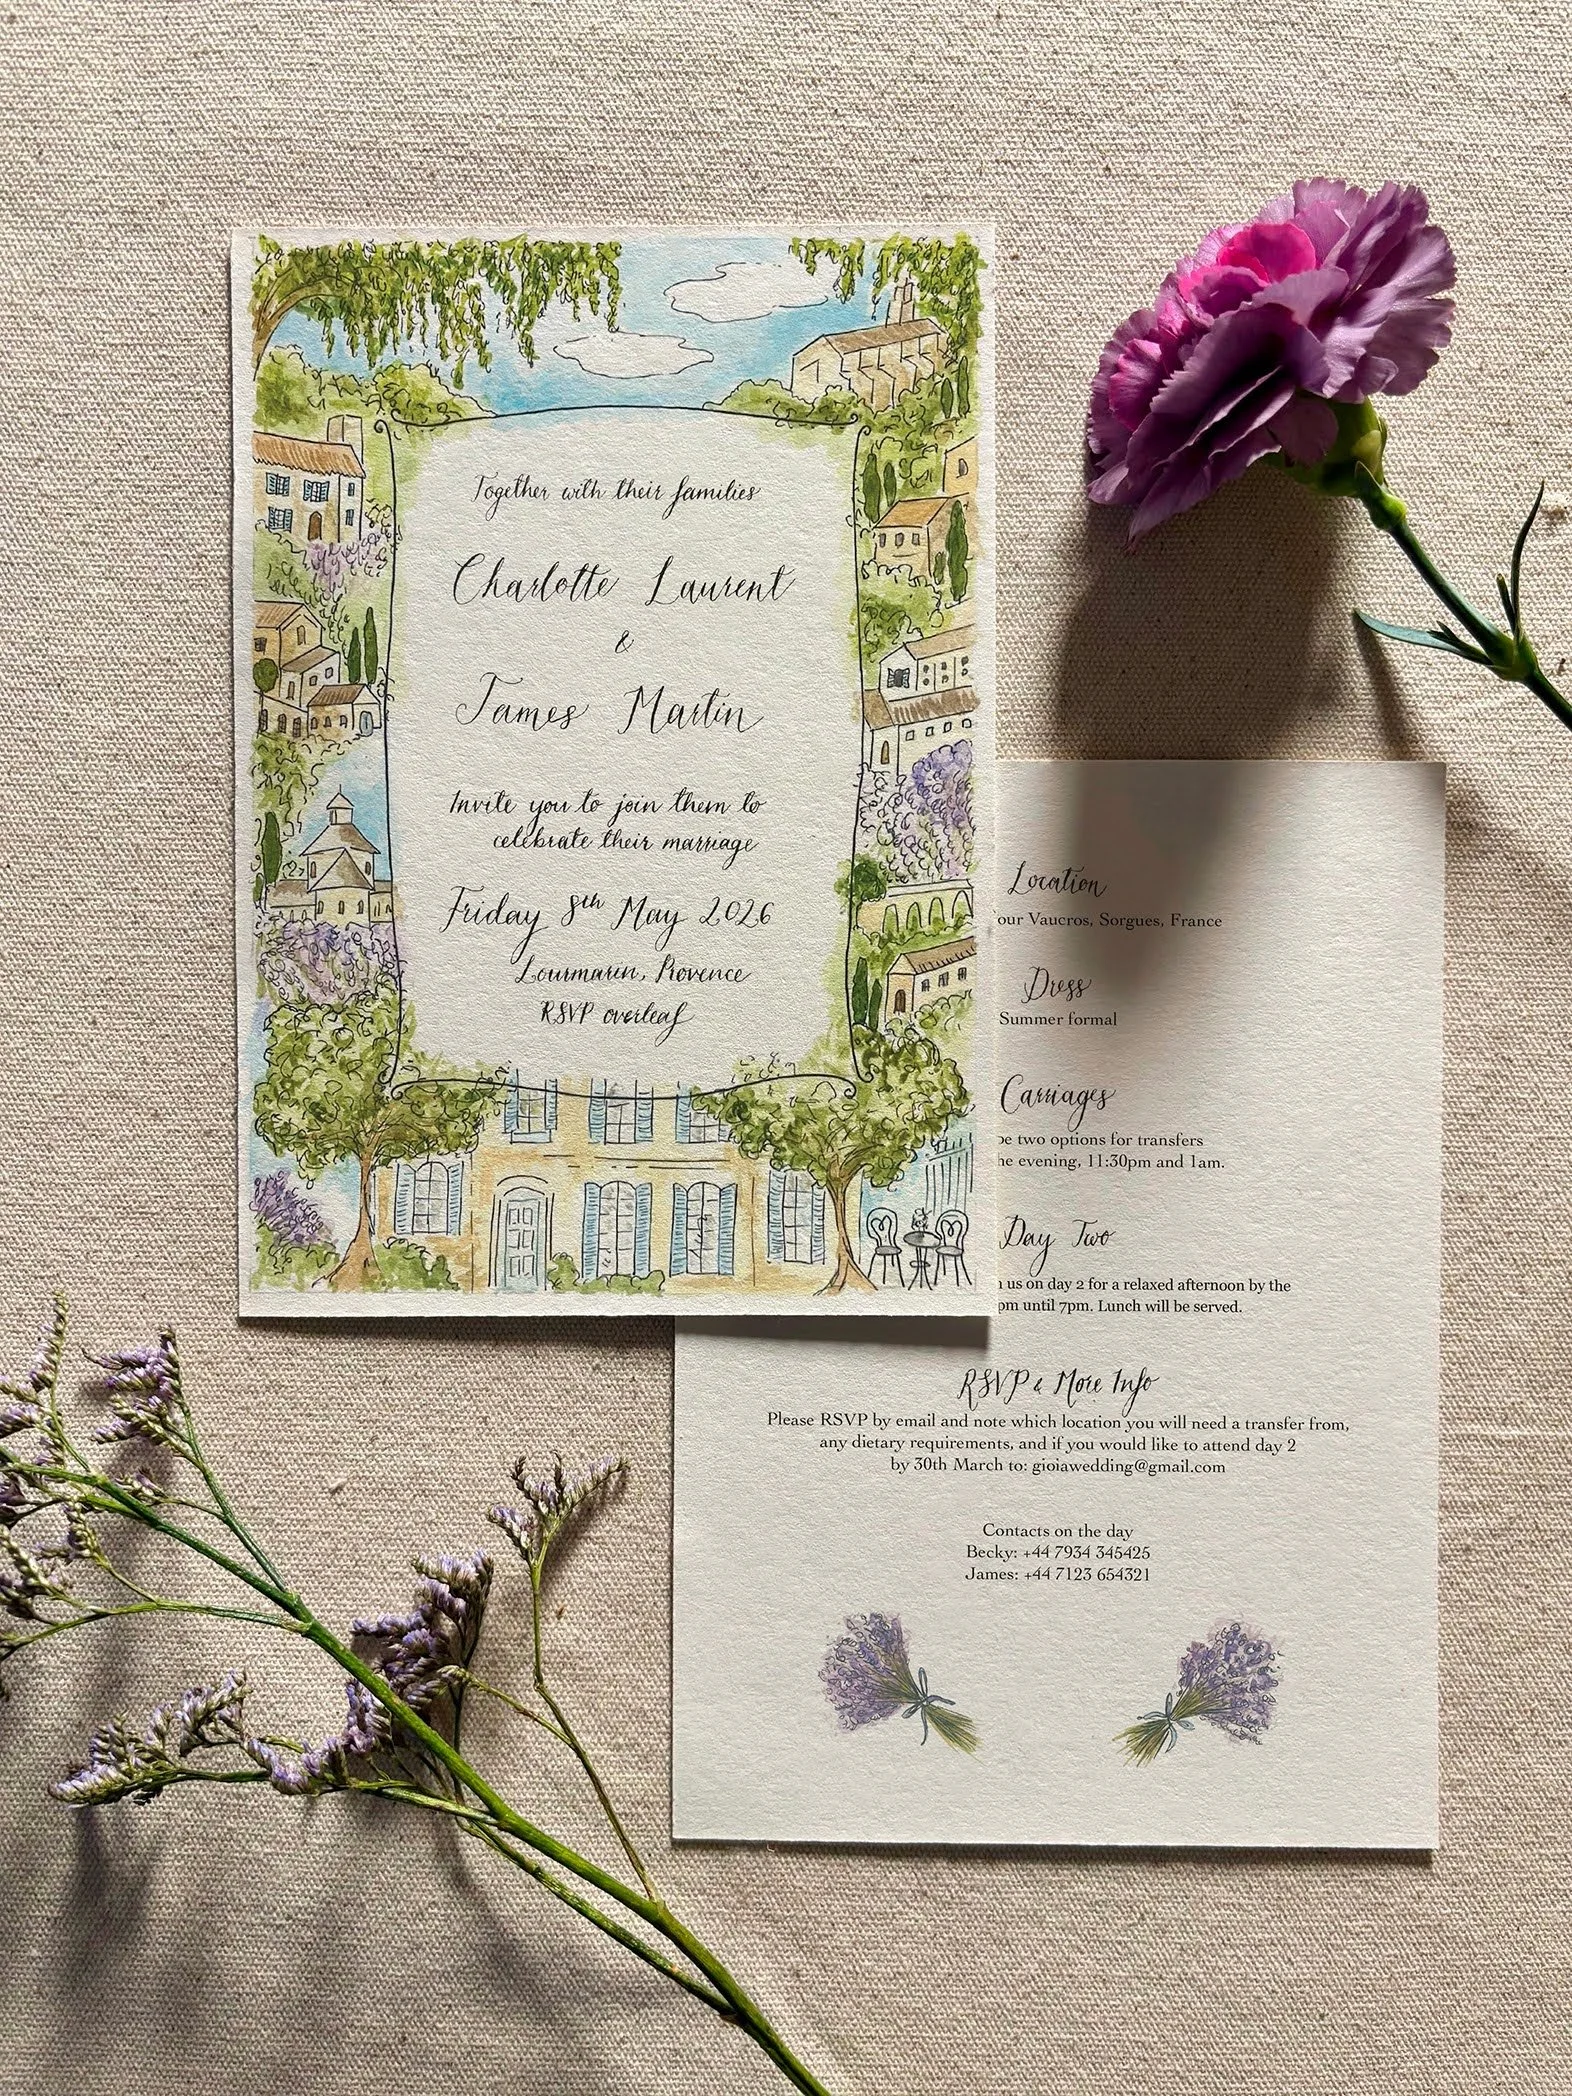 Together with their families
Charlotte Laurent
&
James Martin
Invite you to join them to
celebrate their marriage
Friday 8th May 2026
Lourmarin, Provence
RSVP overleaf
Location
our Vaucros, Sorgues, France
Dress
Summer formal
Carriages
two options for transfers
evening, 11:30pm and 1am.
Day Two
us on day 2 for a relaxed afternoon by the
pm until 7pm. Lunch will be served.
RSVP & More Info
Please RSVP by email and note which location you will need a transfer from,
any dietary requirements, and if you would like to attend day 2
by 30th March to: gioiawedding@gmail.com
Contacts on the day
Becky: +44 7934 345425
James: +44 7123 654321